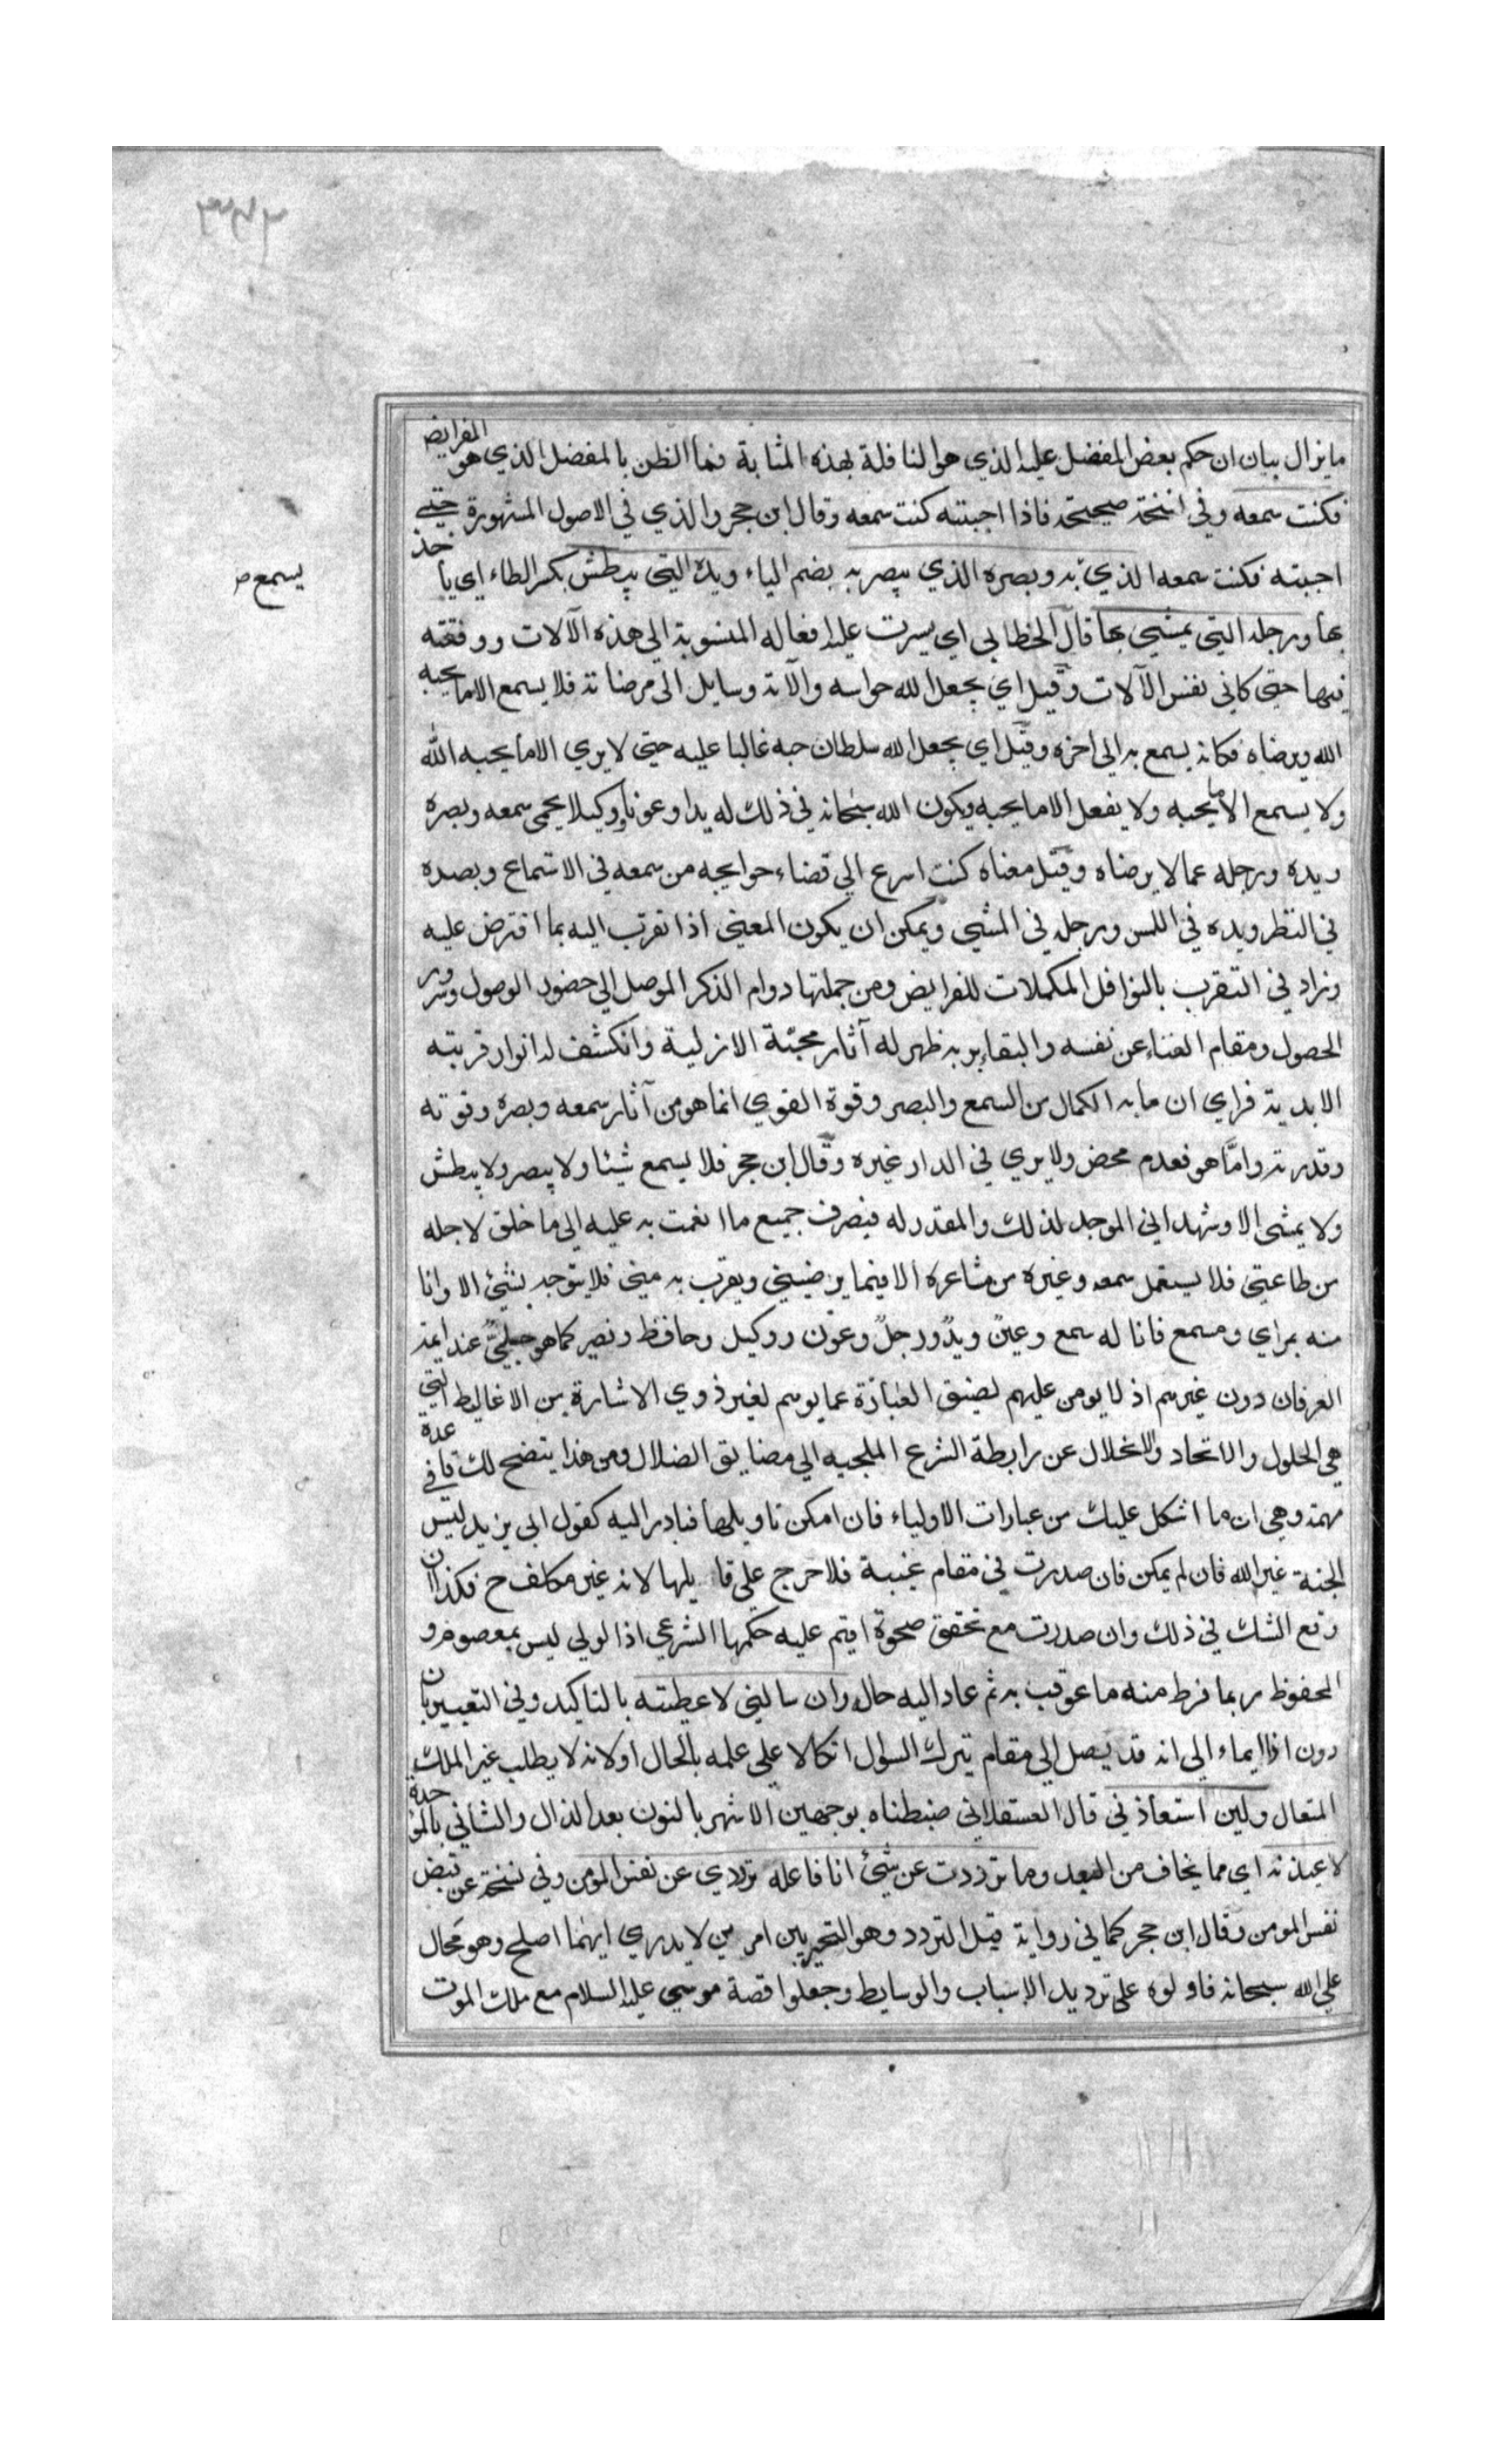 ما يزال بيان ان حكم بعض المفضل عليه الذي هو النافلة بهذه المثابة فما الظن بالمفضل الذي هو الفرايض
فكنت سمعه وفي نسخة صحيحة فاذا احببته كنت سمعه وقال ابن حجر والذي في الاصول المشهورة حتى
احببته فكنت سمعه الذي يسمع به وبصره الذي يبصر به بضم الياء ويده التي يبطش بكسر الطاء اي ياخذ
بها ورجله التي يمشي بها قال الخطابي اي يسرت عليه افعاله المنسوبة الى هذه الآلات ووفقته
فيها حتى كاني نفس الآلات وقيل اي يجعل الله حواسه وآلاته وسايل الى مرضاته فلا يسمع الا ما يحبه
الله ويرضاه فكانه يسمع به الى اخره وقيل اي يجعل الله سلطان حبه غالبا عليه حتى لا يري الا ما يحبه الله
ولا يسمع الا ما يحبه ولا يفعل الا ما يحبه ويكون الله سبحانه في ذلك له يدا وعونا ووكيلا يحمى سمعه وبصره
ويده ورجله عما لا يرضاه وقيل معناه كنت اسرع الي قضاء حوايجه من سمعه في الاستماع وبصره
في النظر ويده في اللمس ورجله في المشي ويمكن ان يكون المعنى اذا تقرب اليه بما افترض عليه
وزاد في التقرب بالنوافل المكملات للفرايض ومن جملتها دوام الذكر الموصل الي حضور الوصول وسرور
الحصول ومقام الفناء عن نفسه والبقاء بربه ظهر له آثار محبته الازلية وانكشف له انوار قربته
الابدية فراي ان ما به الكمال من السمع والبصر وقوة القوي انما هو من آثار سمعه وبصره وقوته
وقدرته واما هو فعدم محض ولا يري في الدار غيره وقال ابن حجر فلا يسمع شيئا ولا يبصر ولا يبطش
ولا يمشى الا وشهد اني الموجد لذلك والمقدر له فيصرف جميع ما انعمت به عليه الي ما خلق لاجله
من طاعتي فلا يستعمل سمعه وغيره من مشاعره الا فيما يرضيني ويقرب به مني فلا يتوجه بشئ الا وانا
منه بمراي ومسمع فانا له سمع وعين ويد ورجل وعون ووكيل وحافظ ونصير كما هو جلي عند ايمة
العرفان دون غيرهم اذ لا يومن عليهم لضيق العبارة عما يوهم لغير ذوي الاشارة من الاغاليط التي
هي الحلول والاتحاد والانحلال عن رابطة الشرع الملجية الي مضايق الضلال ومن هذا يتضح لك قاعدة في
مهمة وهي ان ما اشكل عليك من عبارات الاولياء فان امكن تاويلها فبادر اليه كقول ابي يزيد ليس
الجنة غير الله فان لم يمكن فان صدرت في مقام غيبة فلا حرج على قايلها لانه غير مكلف ح فكذا ان
وقع الشك في ذلك وان صدرت مع تحقق صحوة اقيم عليه حكمها الشرعي اذ الولي ليس بمعصوم و
المحفوظ ربما فرط منه ما عوقب به ثم عاد اليه حاله وان سالني لاعطيته بالتاكيد وفي التعبير بان
دون اذا ايماء الى انه قد يصل الى مقام يترك السوال اتكالا على علمه بالحال اولانه لا يطلب غير الملك
المتعال ولين استعاذني قال العسقلاني ضبطناه بوجهين الاشهر بالنون بعد الذال والثاني بالموحدة
لاعيذنه اي مما يخاف من البعد وما ترددت عن شئ انا فاعله ترددي عن نفس المومن وفي نسخة عن قبض
نفس المومن وقال ابن حجر كما في رواية قيل التردد وهو التحير بين امرين لا يدري ايهما اصلح وهو محال
على الله سبحانه فاولوه على ترديد الاسباب والوسايط وجعلوا قصة موسي عليه السلام مع ملك الموت
يسمع ص